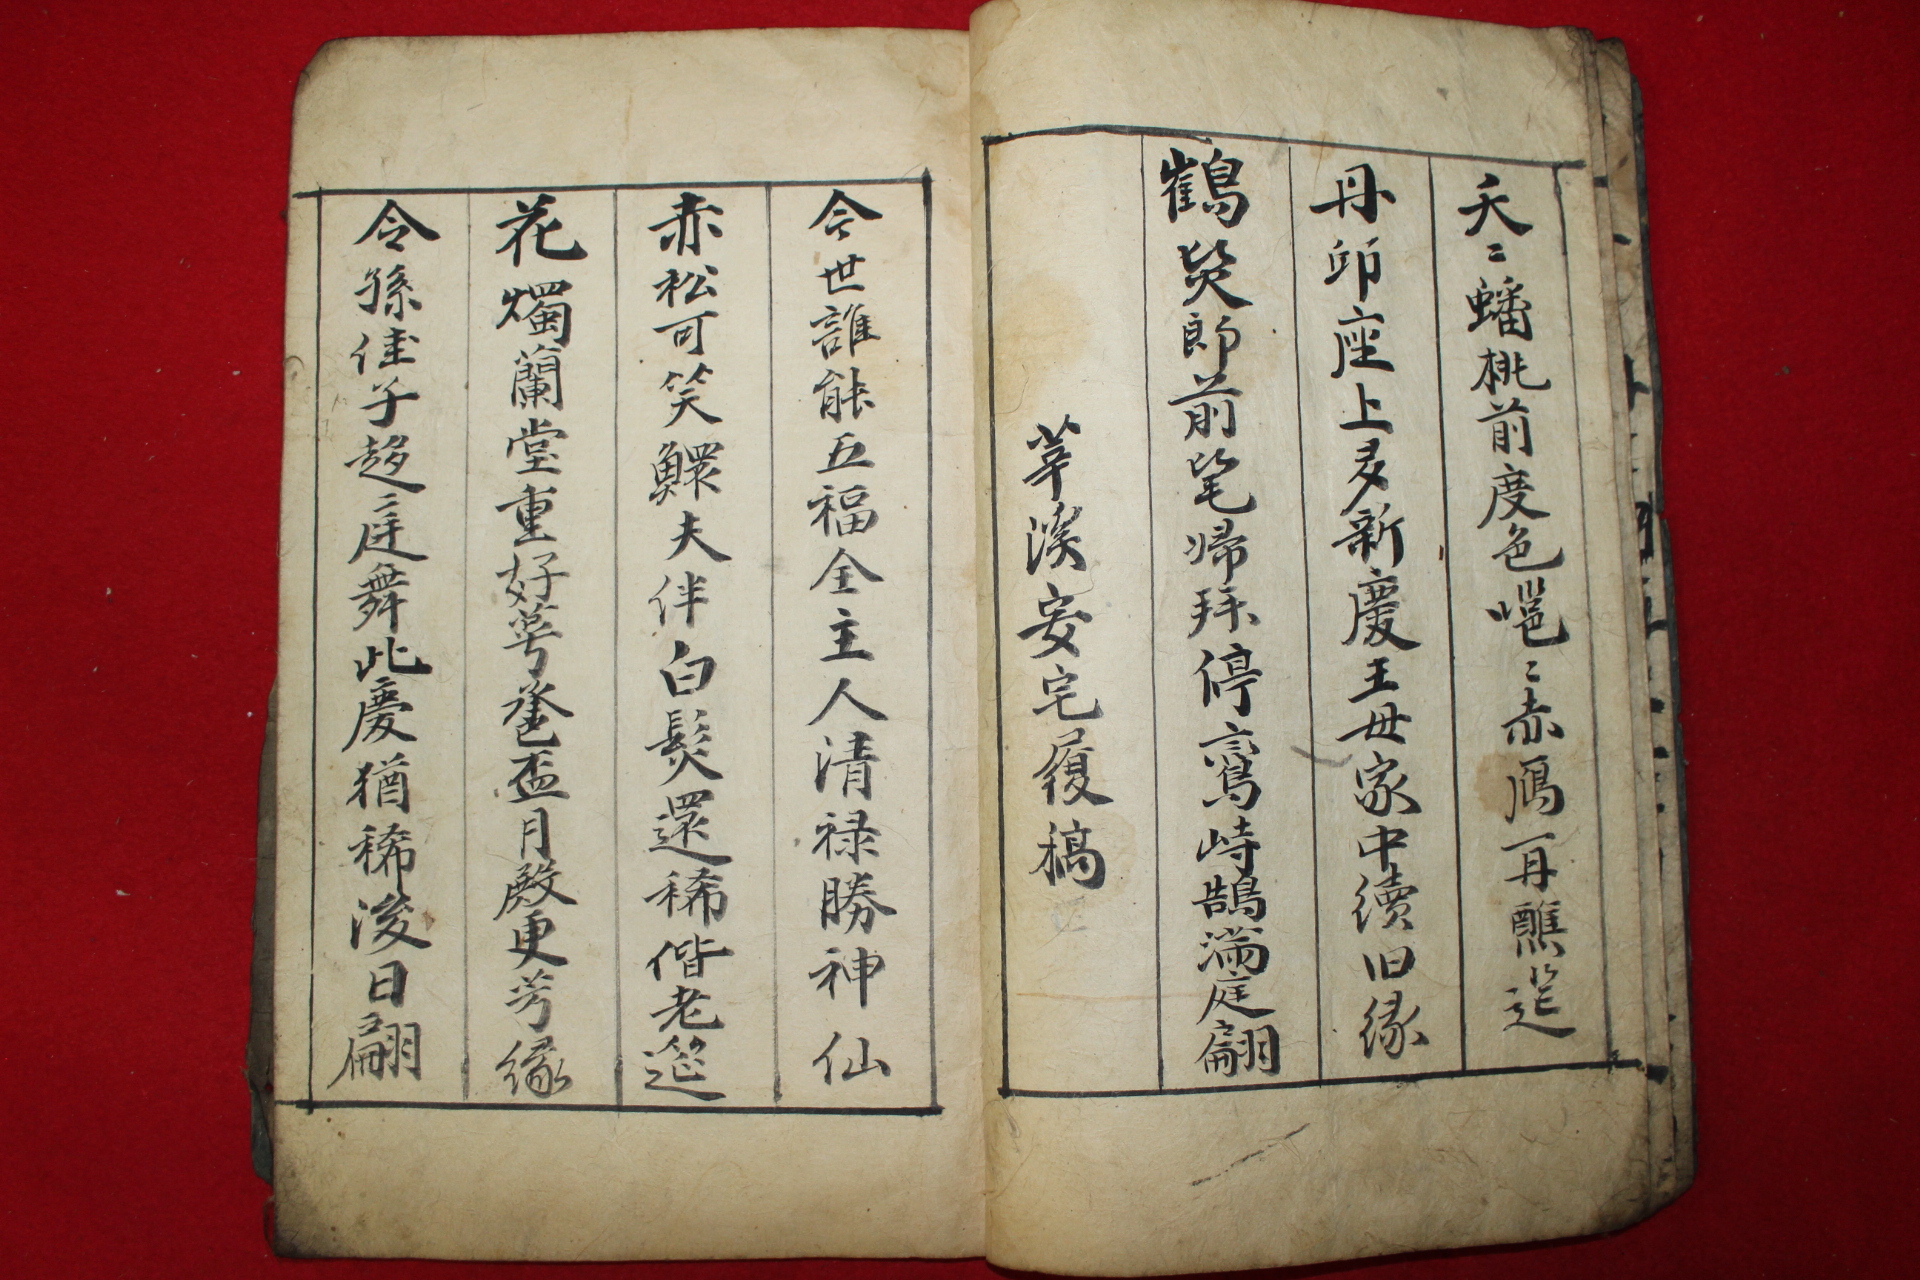 夭〻蟠桃前度色嗈〻赤鴈再醮筵
丹卯座上多新慶王母家中續旧緣
鶴髮郎前笔帰拜停鸞峙鵠滿庭翩
莘溪安宅履稿
今世誰能五福全主人清禄勝神仙
赤松可笑鰥夫伴白髮還稀偕老筵
花燭蘭堂重好萼卺盃月殿更芳緣
令孫佳子趍庭舞此慶猶稀浚日翩